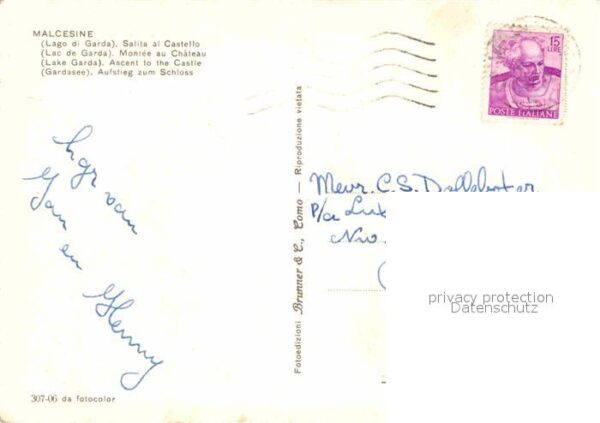 MALCESINE
(Lago di Garda). Salita al Castello
(Lac de Garda). Montée au Château
(Lake Garda). Ascent to the Castle
(Gardasee). Aufstieg zum Schloss
15
LIRE
POSTE ITALIANE
Hgr van
Jan en
Henny
Fotoedizioni Brunner & C., Como — Riproduzione vietata
Mevr. C.S.
P/a Lux
privacy protection
Datenschutz
307-06 da fotocolor